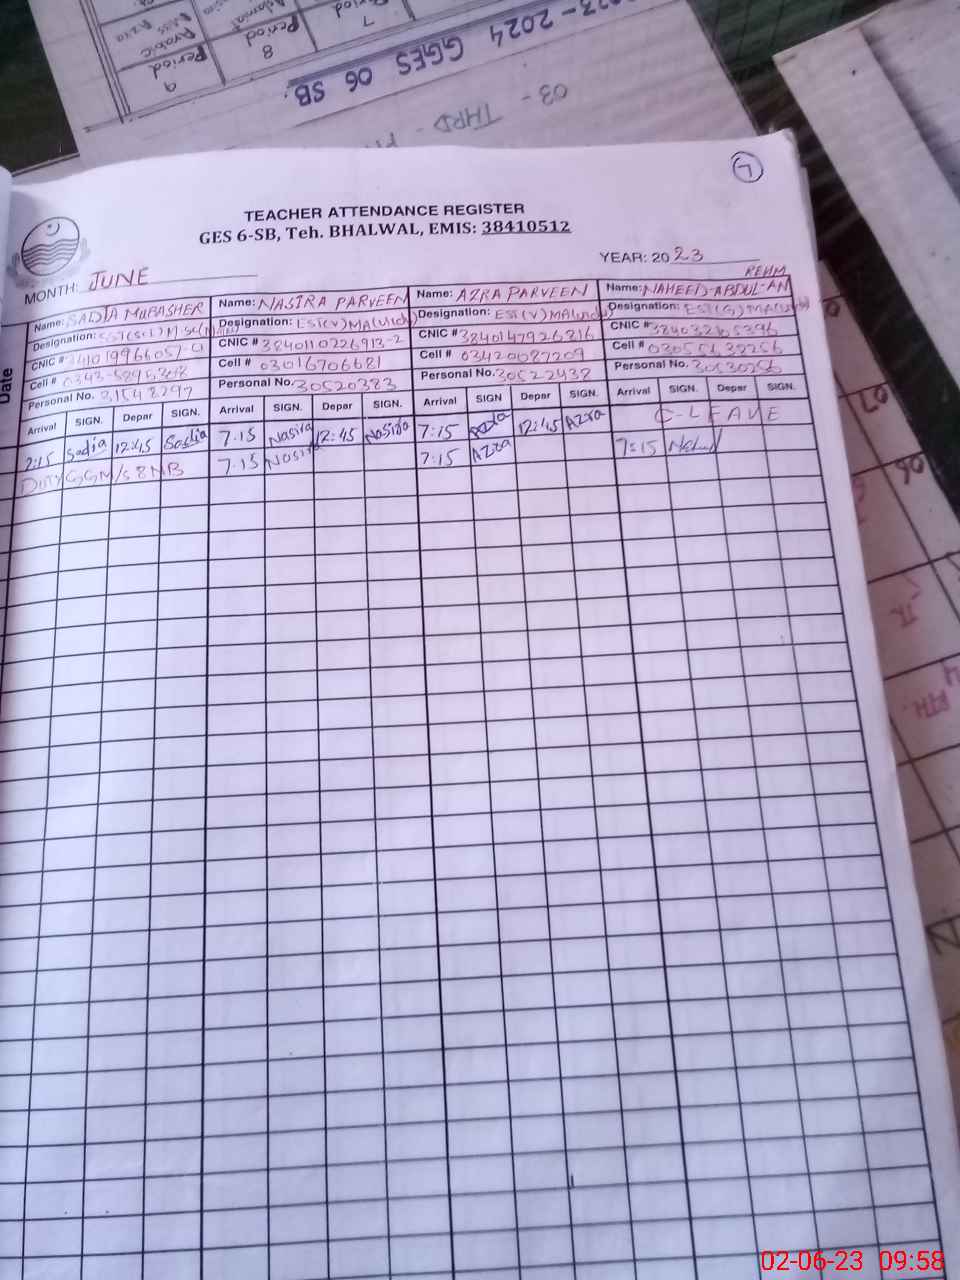 9 8 7
Period Period Period
Arabic
Miss Azra
2023-2024 GGES 06 SB.
03 - THRD -
7
TEACHER ATTENDANCE REGISTER
GES 6-SB, Teh. BHALWAL, EMIS: 38410512
MONTH: JUNE YEAR: 2023
REHM
Name: SADIA MUBASHER Name: NASIRA PARVEEN Name: AZRA PARVEEN Name: NAHEED-ABDUL-AN
Designation: Designation: EST(V) MA(Urdu) Designation: EST(V) MA(Urdu) Designation: EST(G) MA
CNIC # CNIC # 3840110226913-2 CNIC # 3840147926816 CNIC #
Cell # Cell # 03016706681 Cell # 03420087209 Cell #
Personal No. Personal No. 30520383 Personal No. 30522438 Personal No. 30530256
Date
Arrival SIGN. Depar SIGN. Arrival SIGN. Depar SIGN. Arrival SIGN Depar SIGN. Arrival SIGN. Depar SIGN.
7:15 Sadia 12:45 Sadia 7:15 Nasira 12:45 Nasira 7:15 Azra 12:45 Azra C-LEAVE
DUTY GGM/S 8 NB 7:15 Nasira 7:15 Azra 7:15
07
06
02-06-23 09:58